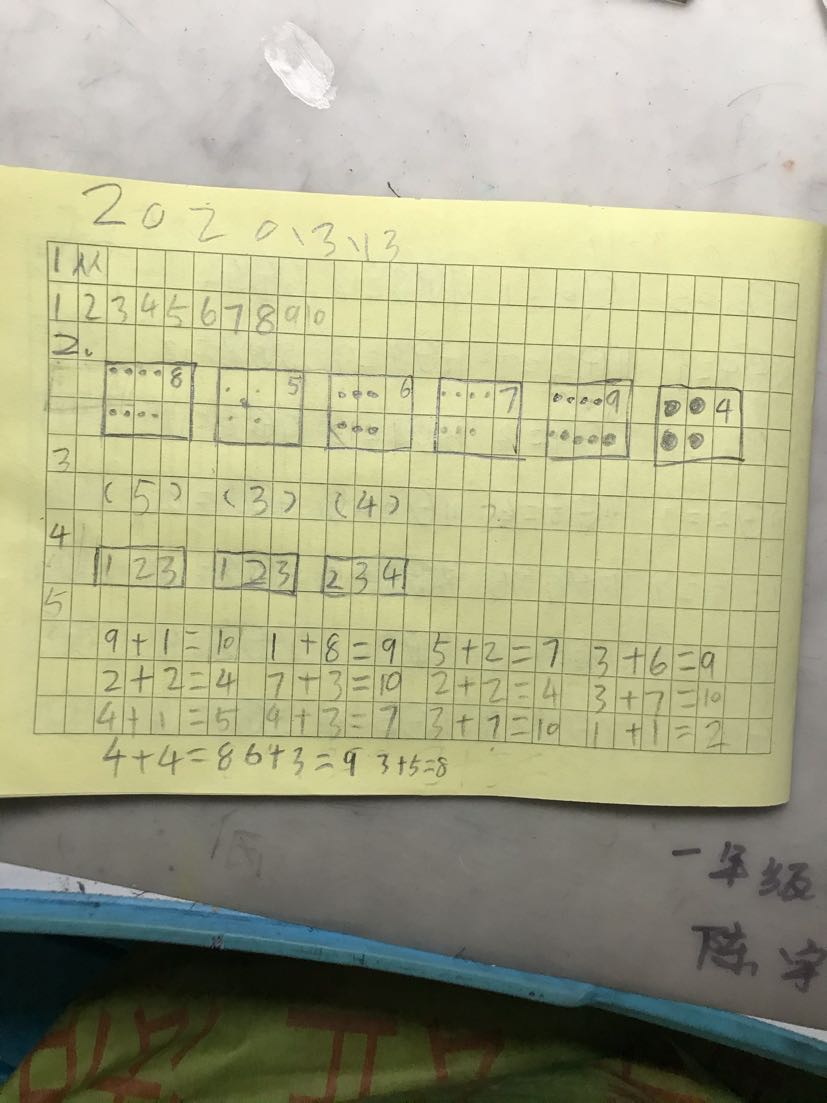 2020、3、13
1
1 2 3 4 5 6 7 8 9 10
2.
8 5 6 7 9 4
3
(5) (3) (4)
4
1 2 3 1 2 3 2 3 4
5
9+1=10 1+8=9 5+2=7 3+6=9
2+2=4 7+3=10 2+2=4 3+7=10
4+1=5 4+3=7 3+7=10 1+1=2
4+4=8 6+3=9 3+5=8
一年级
陈宇